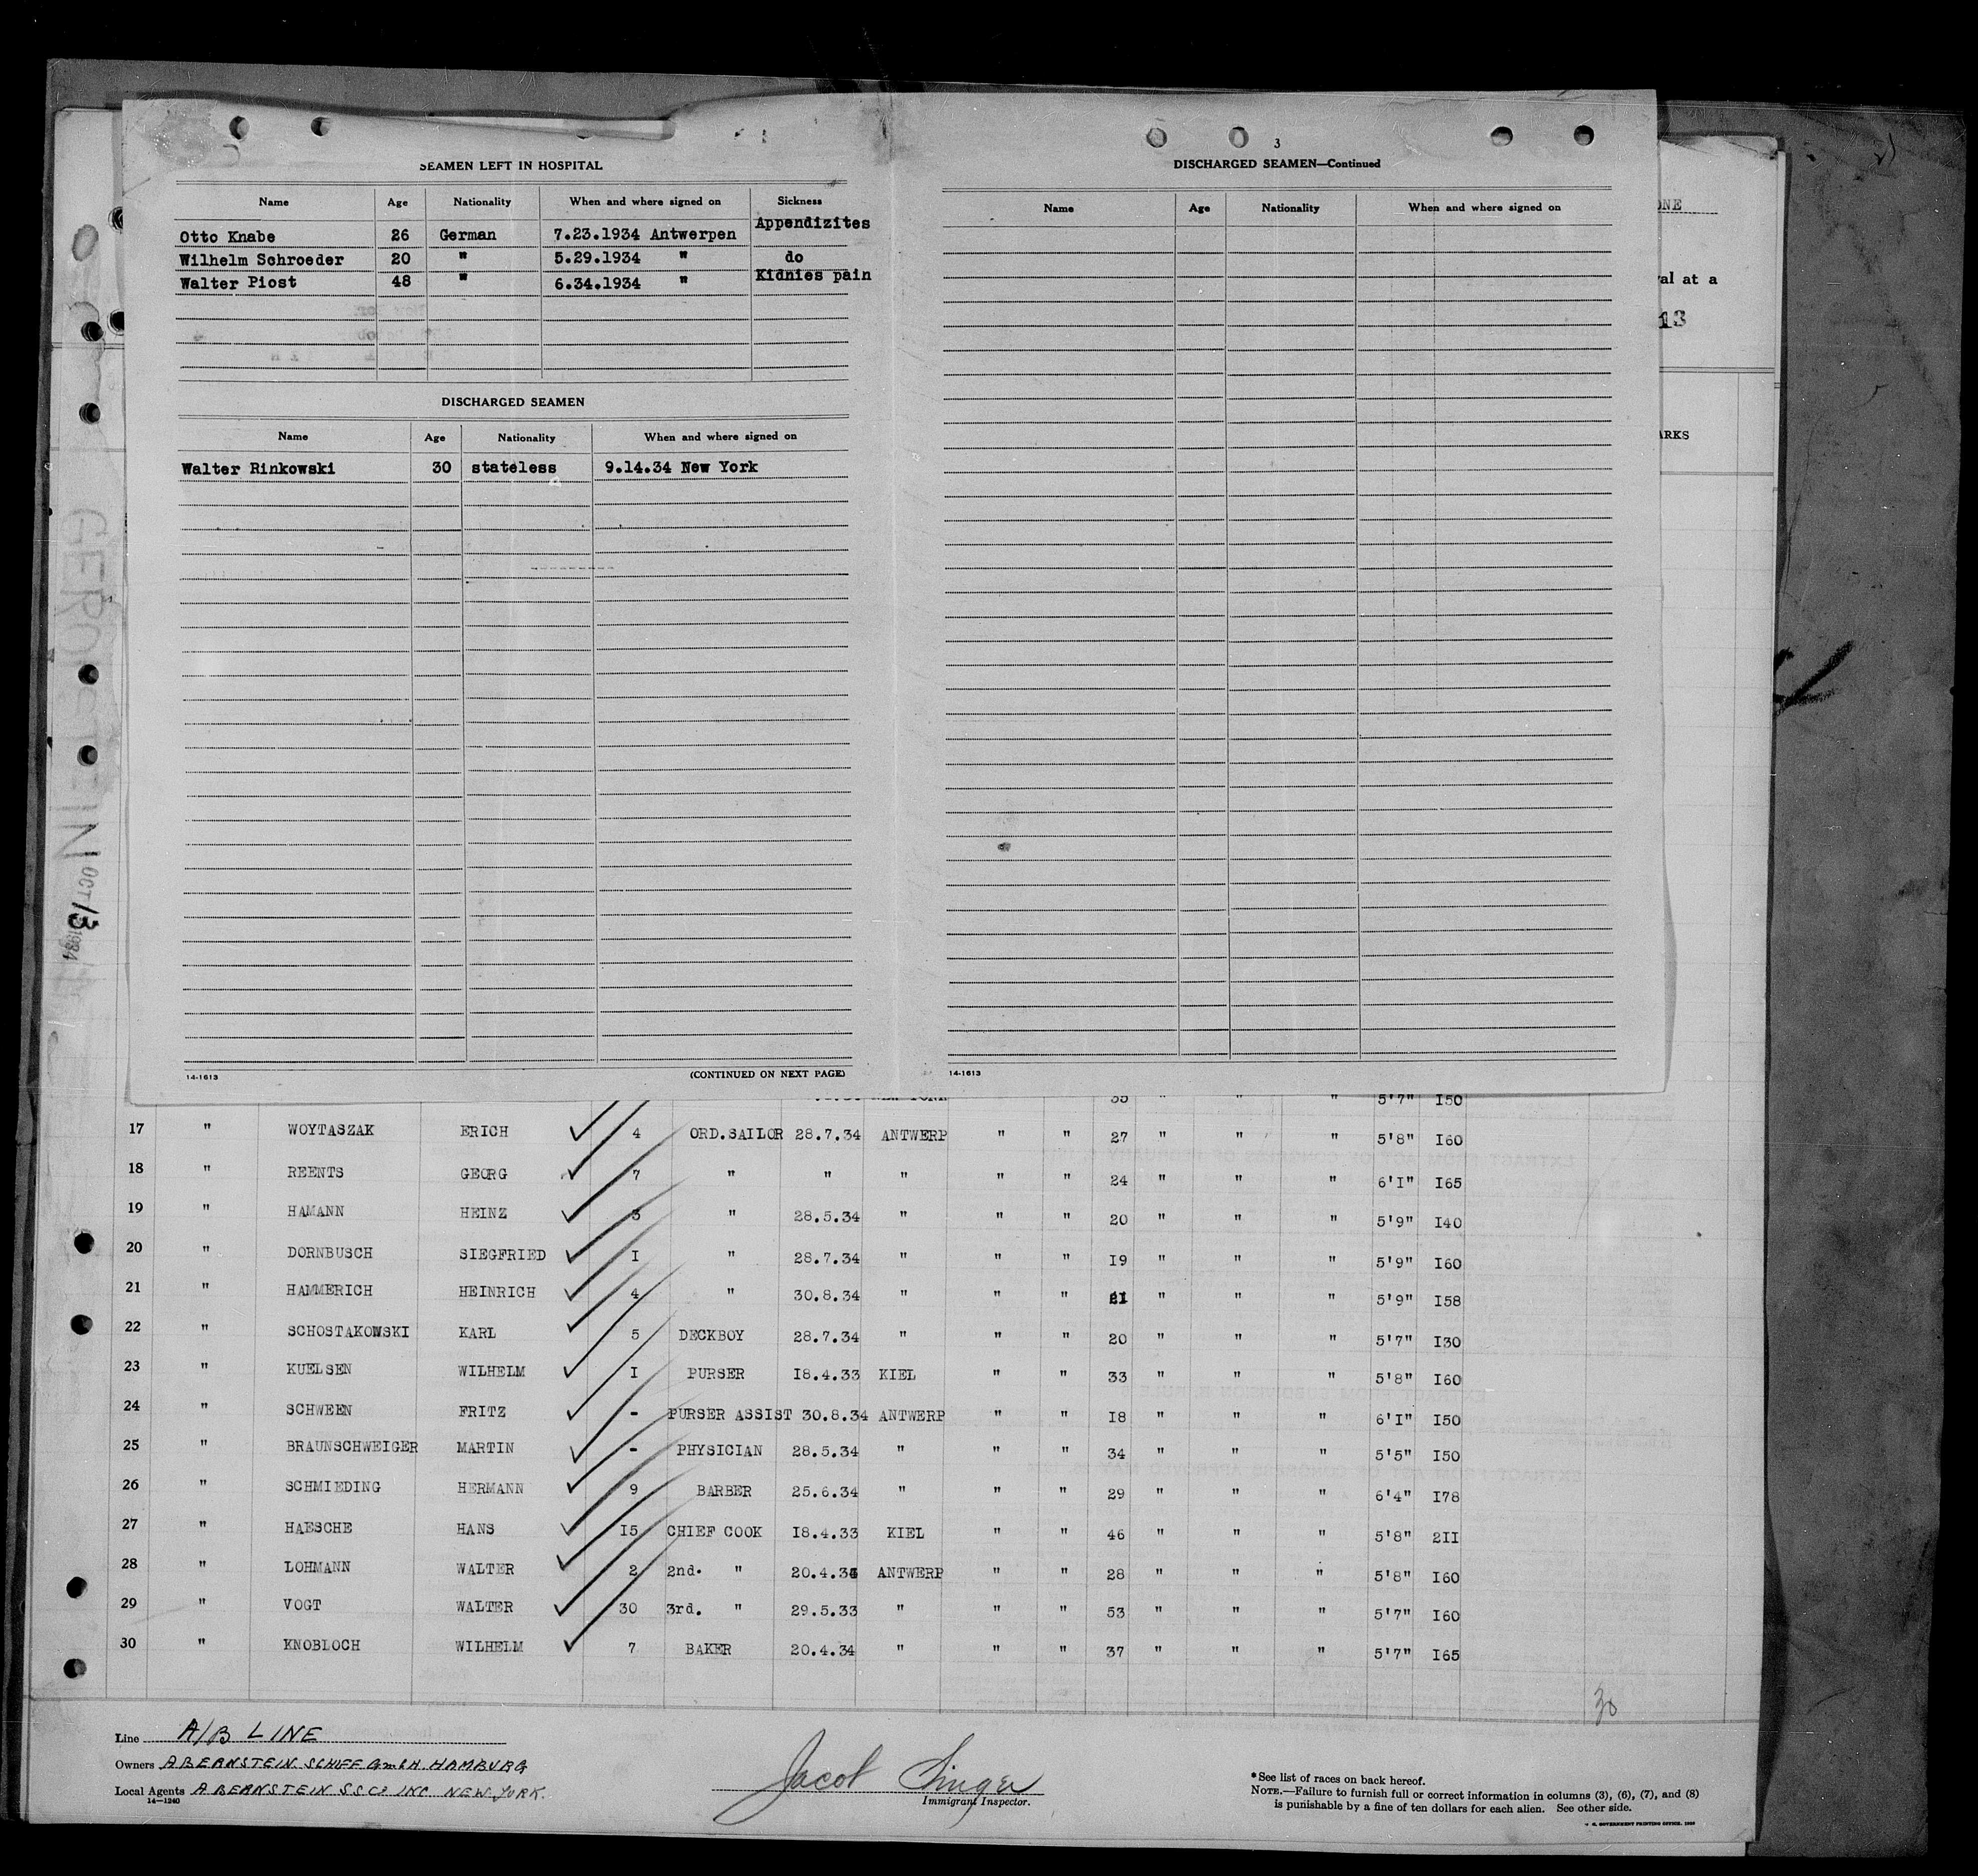 SEAMEN LEFT IN HOSPITAL
Name Age Nationality When and where signed on Sickness
Otto Knabe 26 German 7.23.1934 Antwerpen Appendizites
Wilhelm Schroeder 20 " 5.29.1934 " do
Walter Piost 48 " 6.34.1934 " Kidnies pain
DISCHARGED SEAMEN
Name Age Nationality When and where signed on
Walter Rinkowski 30 stateless 9.14.34 New York
14-1613 (CONTINUED ON NEXT PAGE)
3
DISCHARGED SEAMEN—Continued
Name Age Nationality When and where signed on
14-1613
ONE
val at a
13
ARKS
GEROLSTEIN OCT 13 1934
35 " " " 5'7" I50
17 " WOYTASZAK ERICH 4 ORD.SAILOR 28.7.34 ANTWERP " " 27 " " " 5'8" I60
18 " REENTS GEORG 7 " " " " " 24 " " " 6'I" I65
19 " HAMANN HEINZ 3 " 28.5.34 " " " 20 " " " 5'9" I40
20 " DORNBUSCH SIEGFRIED I " 28.7.34 " " " I9 " " " 5'9" I60
21 " HAMMERICH HEINRICH 4 " 30.8.34 " " " 21 " " " 5'9" I58
22 " SCHOSTAKOWSKI KARL 5 DECKBOY 28.7.34 " " " 20 " " " 5'7" I30
23 " KUELSEN WILHELM I PURSER I8.4.33 KIEL " " 33 " " " 5'8" I60
24 " SCHWEEN FRITZ - PURSER ASSIST 30.8.34 ANTWERP " " I8 " " " 6'I" I50
25 " BRAUNSCHWEIGER MARTIN - PHYSICIAN 28.5.34 " " " 34 " " " 5'5" I50
26 " SCHMIEDING HERMANN 9 BARBER 25.6.34 " " " 29 " " " 6'4" I78
27 " HAESCHE HANS I5 CHIEF COOK I8.4.33 KIEL " " 46 " " " 5'8" 2II
28 " LOHMANN WALTER 2 2nd. " 20.4.34 ANTWERP " " 28 " " " 5'8" I60
29 " VOGT WALTER 30 3rd. " 29.5.33 " " " 53 " " " 5'7" I60
30 " KNOBLOCH WILHELM 7 BAKER 20.4.34 " " " 37 " " " 5'7" I65
30
Line A/B LINE
Owners A BERNSTEIN. SCHIFF GmbH HAMBURG
Local Agents A BERNSTEIN S.S.Co INC NEW YORK.
14—1240
Jacob Singer
Immigrant Inspector.
*See list of races on back hereof.
NOTE.—Failure to furnish full or correct information in columns (3), (6), (7), and (8)
is punishable by a fine of ten dollars for each alien. See other side.
GOVERNMENT PRINTING OFFICE.